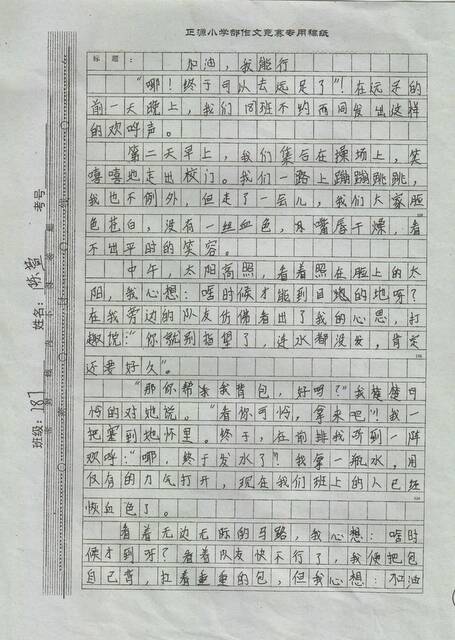 正源小学部作文竞赛专用稿纸
标题: 加油,我能行
“哪!终于可以去远足了”!在远足的
前一天晚上,我们同班不约而同发出这样
的欢哗声。
第二天早上,我们集合在操场上,笑
嘻嘻地走出校门。我们一路上蹦蹦跳跳,
我也不例外,但走了一会儿,我们大家脸
色苍白,没有一丝血色,嘴唇干燥,看
不出平时的笑容。
中午,太阳高照,看着照在脸上的太
阳,我心想:啥时候才能到目的地呀?
在我旁边的队友仿佛看出了我的心思,打
趣说:“你就别指望了,连水都没发,肯定
还要好久”。
“那你帮我背包,好吗?”我楚楚可
怜的对她说。“看你可怜,拿来吧!”我一
把塞到她怀里。终于,在前排我听到一阵
欢呼:“哪,终于发水了”!我拿一瓶水,用
仅有的力气打开,现在我们班上的人已经
恢血色了。
看着无边无际的马路,我心想:啥时
候才到呀?看着队友快不行了,我便把包
自己背,扛着重重的包,但我心想:加油
班级:187 姓名:陈 考号